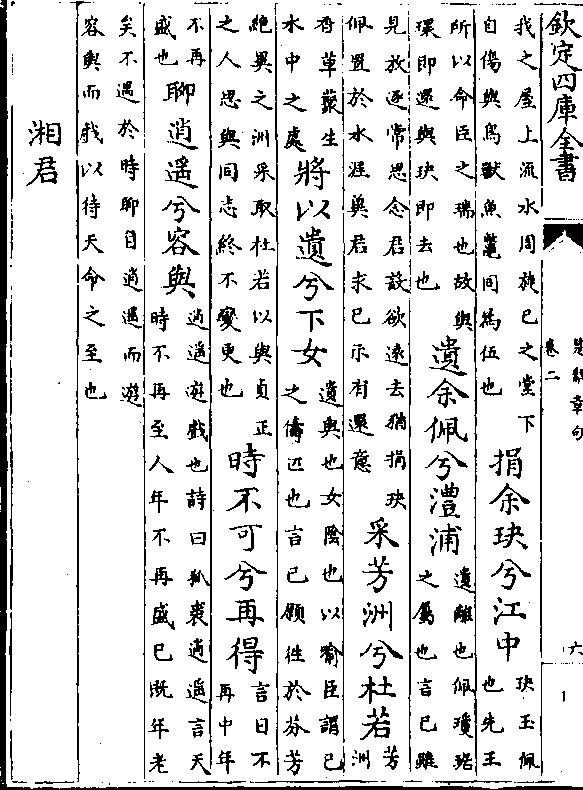 欽定四庫全書
楚辭章句
卷二
六
我之屋上流水周旋己之堂下
自傷與鳥獸魚鼈同為伍也
捐余玦兮江中
玦玉佩
也先王
所以命臣之瑞也故與
環即還與玦即去也
遺余佩兮澧浦
遺離也佩瓊琚
之屬也言己雖
見放逐常思念君設欲遠去猶捐玦
佩置於水涯冀君求己示有還意
采芳洲兮杜若
芳
洲
香草藂生
水中之處
將以遺兮下女
遺與也女陰也以喻臣謂己
之儔匹也言己願往於芬芳
絶異之洲采取杜若以與貞正
之人思與同志終不變更也
時不可兮再得
言日不
再中年
不再
盛也
聊逍遥兮容與
逍遥遊戲也詩曰狐裘逍遥言天
時不再至人年不再盛已既年老
矣不遇於時聊自逍遥而遊
容與而戲以待天命之至也
湘君